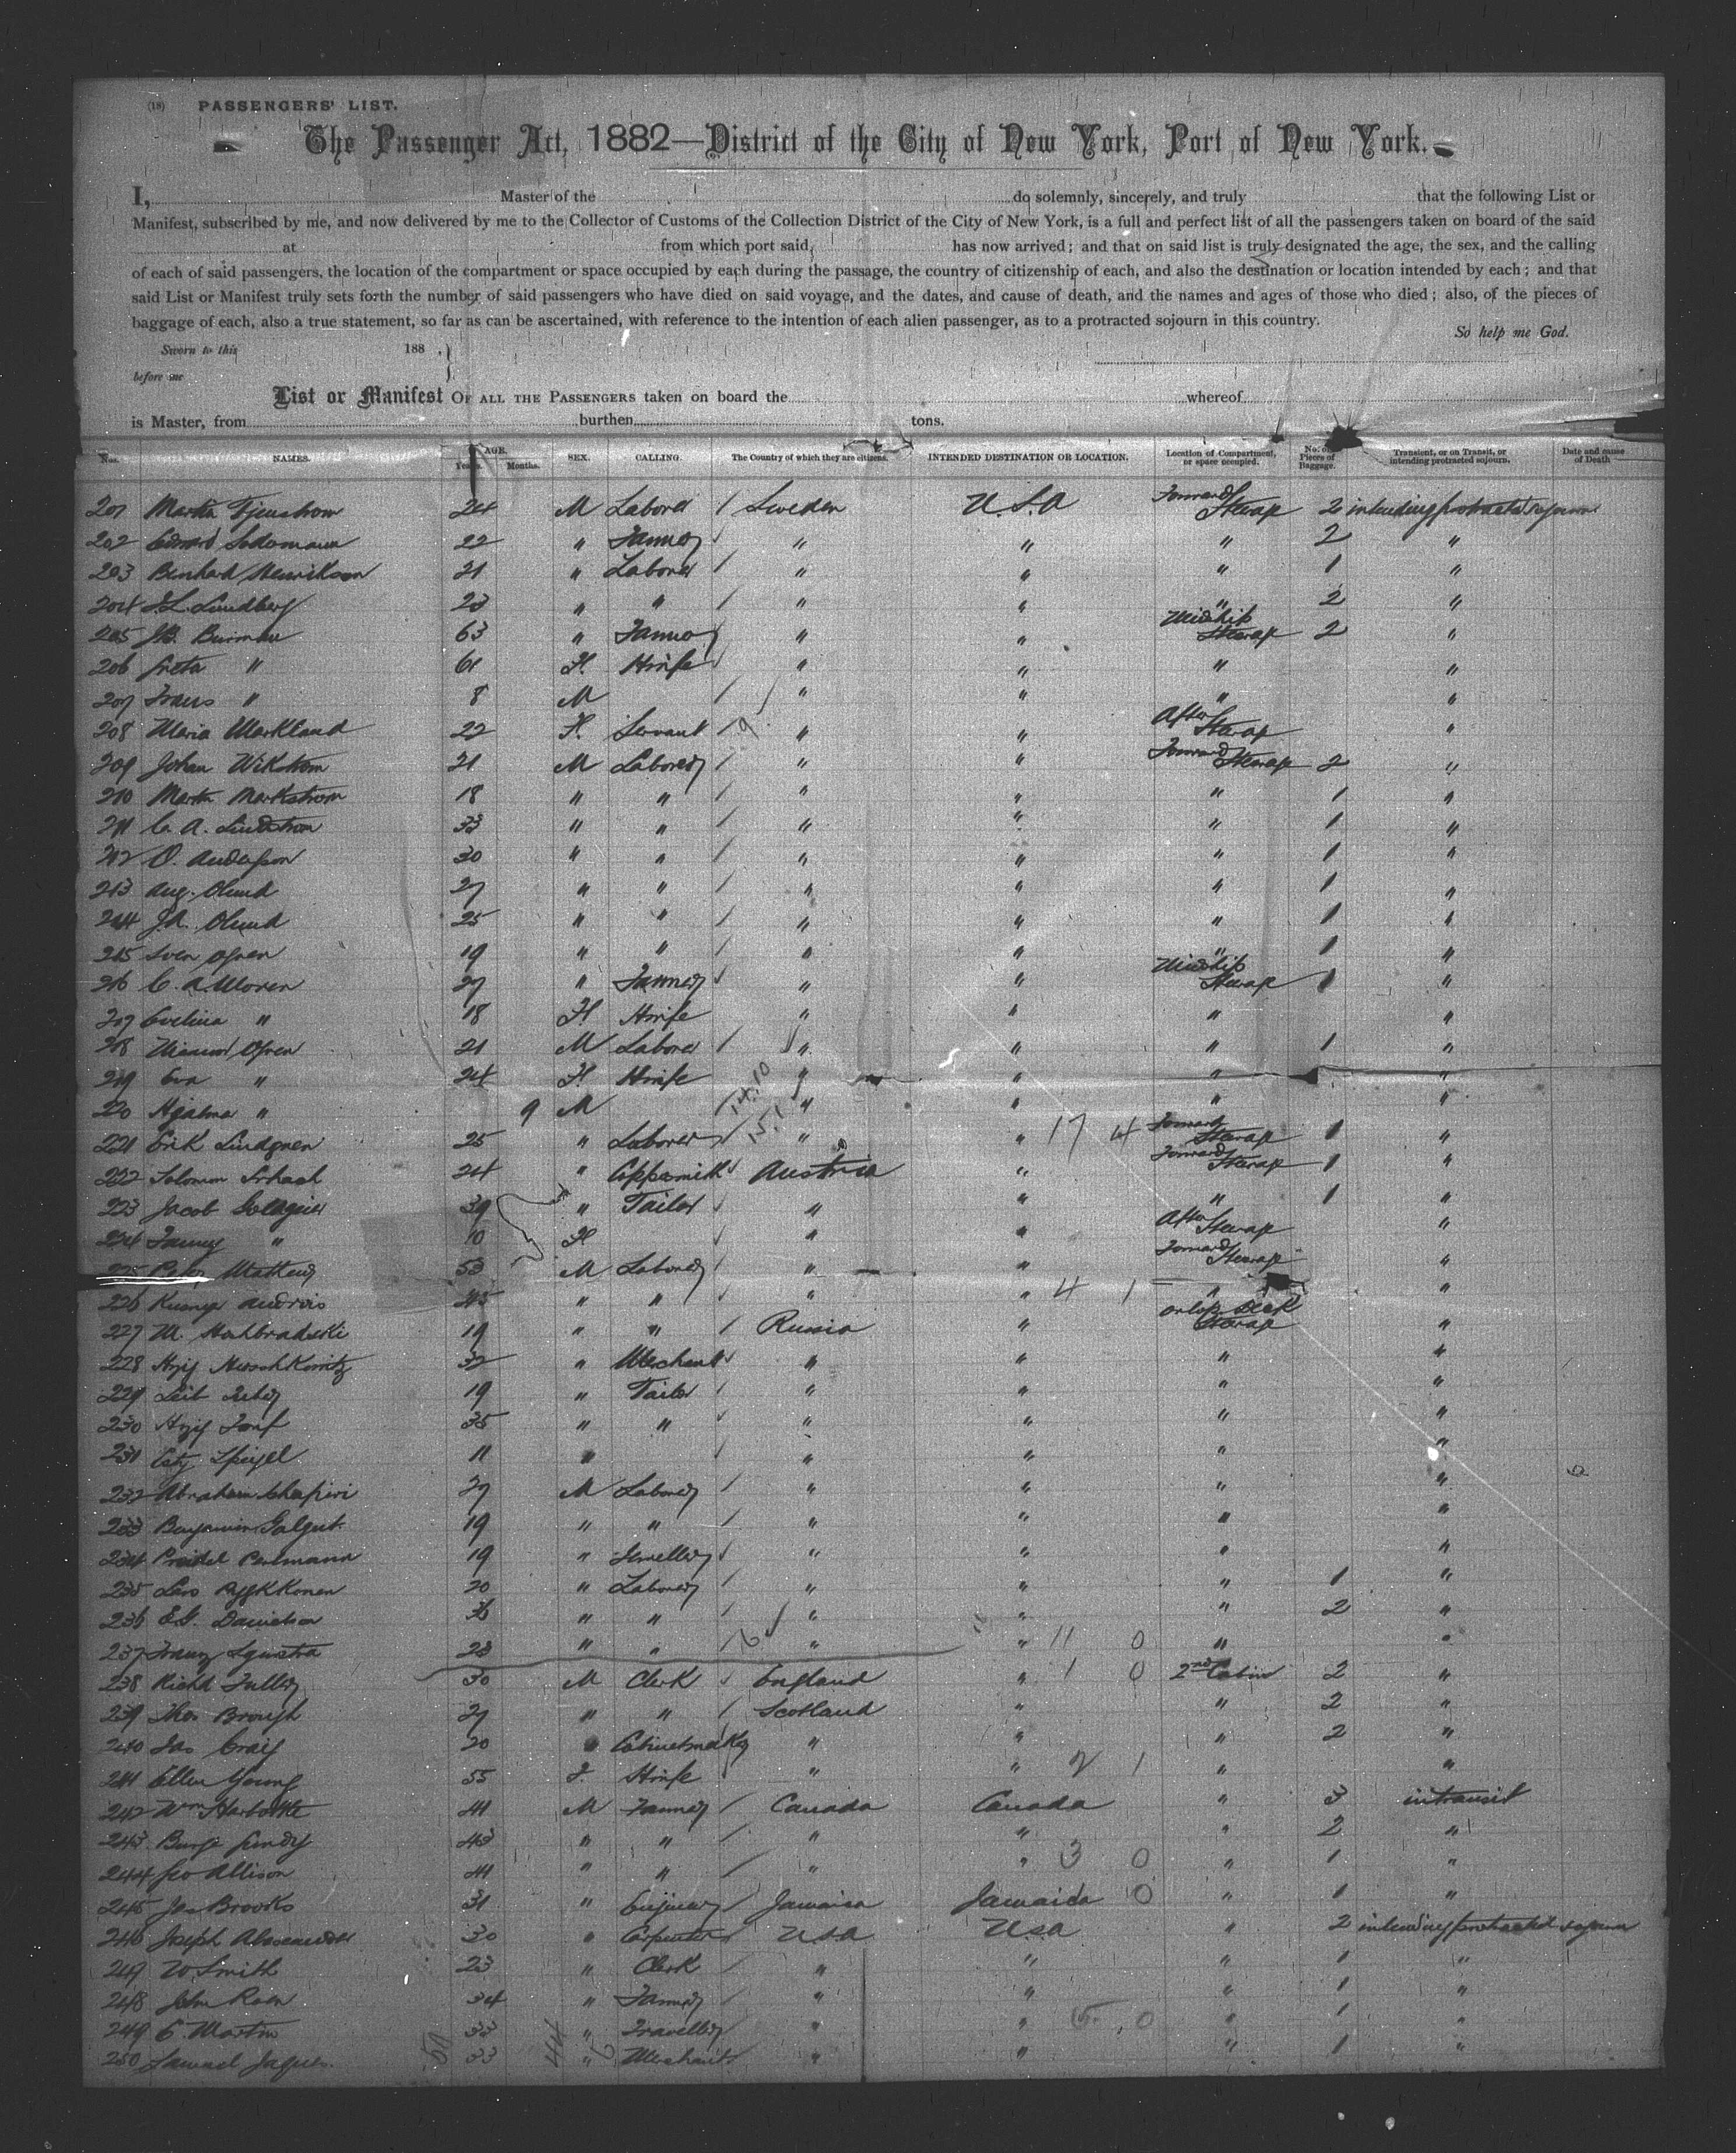 (18) PASSENGERS' LIST.
The Passenger Act, 1882—District of the City of New York, Port of New York.
I, Master of the do solemnly, sincerely, and truly that the following List or
Manifest, subscribed by me, and now delivered by me to the Collector of Customs of the Collection District of the City of New York, is a full and perfect list of all the passengers taken on board of the said
at from which port said, has now arrived; and that on said list is truly designated the age, the sex, and the calling
of each of said passengers, the location of the compartment or space occupied by each during the passage, the country of citizenship of each, and also the destination or location intended by each; and that
said List or Manifest truly sets forth the number of said passengers who have died on said voyage, and the dates, and cause of death, and the names and ages of those who died; also, of the pieces of
baggage of each, also a true statement, so far as can be ascertained, with reference to the intention of each alien passenger, as to a protracted sojourn in this country.
So help me God.
Sworn to this 188 .
before me
List or Manifest OF ALL THE PASSENGERS taken on board the whereof
is Master, from burthen tons.
Nos. NAMES. AGE. Years. Months. SEX. CALLING. The Country of which they are citizens. INTENDED DESTINATION OR LOCATION. Location of Compartment, or space occupied. No. of Pieces of Baggage. Transient, or on Transit, or intending protracted sojourn. Date and cause of Death
201 24 M Laborer Sweden U.S.A Forward Steerage 2 intending protracted sojourn
202 22 " Farmer " " " 2 "
203 Henrikson 21 " Laborer " " " 1 "
204 J.L. Lundberg 23 " " " " " 2 "
205 J.B. Burman 63 " Farmer " " Midship Steerage 2 "
206 Greta " 61 F. H.wife " " " "
207 Frans " 8 M " " " "
208 Maria Markland 22 F. Servant " " After Steerage "
209 Johan Wikstrom 21 M Laborer " " Forward Steerage 2 "
210 Markstrom 18 " " " " " 1 "
211 C. A. Lindstrom 33 " " " " " 1 "
212 O. Anderson 30 " " " " " 1 "
213 Aug. Olund 27 " " " " " 1 "
214 J.A. Olund 25 " " " " " 1 "
215 Sven Ofren 19 " " " " " 1 "
216 C. A. 27 " Farmer " " Midship Steerage 1 "
217 Evelina " 18 F. H.wife " " " "
218 Ofren 21 M Laborer " " " 1 "
219 Eva " 24 F. H.wife " " " "
220 Hjalma " 9 M " " " "
221 Erik Lindgren 25 " Laborer " " 17 4 Forward Steerage 1 "
222 Solomon 24 " Coppersmith Austria " Forward Steerage 1 "
223 Jacob 39 " Tailor " " " 1 "
224 Fanny " 10 F. " " After Steerage "
225 53 M Laborer " " Forward Steerage "
226 45 " " " " 4 1 " "
227 M. 19 " " Russia " Orlop Deck Steerage "
228 32 " Merchant " " " "
229 Leib 19 " Tailor " " " "
230 35 " " " " " "
231 Spiegel 11 " " " " "
232 Abraham Schapiri 27 M Laborer " " " "
233 Benjamin Galgut 19 " " " " " "
234 Perlmann 19 " Jeweller " " " "
235 20 " Laborer " " " 1 "
236 E.G. Danielson 36 " " " " " 2 "
237 Franz 23 " " " " 11 0 " "
238 Richd Fuller 30 M Clerk England " 1 0 2nd Cabin 2 "
239 Thos Brough 27 " " Scotland " " 2 "
240 Jas Craig 20 " Cabinetmaker " " " 2 "
241 Ellen Young 55 F. H.wife " " 2 1 " "
242 Wm Harbottle 41 M Farmer Canada Canada " 3 in transit
243 43 " " " " " 2 "
244 Geo Allison 41 " " " " 3 0 " 1 "
245 Jas Brooks 31 " Engineer Jamaica Jamaica 0 " 1 "
246 Joseph 30 " Carpenter U.S.A U.S.A " 2 intending protracted sojourn
247 W Smith 23 " Clerk " " " 1 "
248 John 34 " Farmer " " " 1 "
249 C. Martin 33 " Traveller " " 5 0 " 1 "
250 Samuel Jaques. 33 " Merchant " " " 1 "